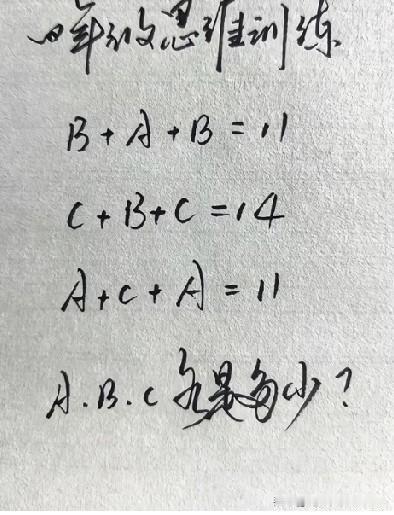 四年级思维训练
B+A+B=11
C+B+C=14
A+C+A=11
A.B.C各是多少?